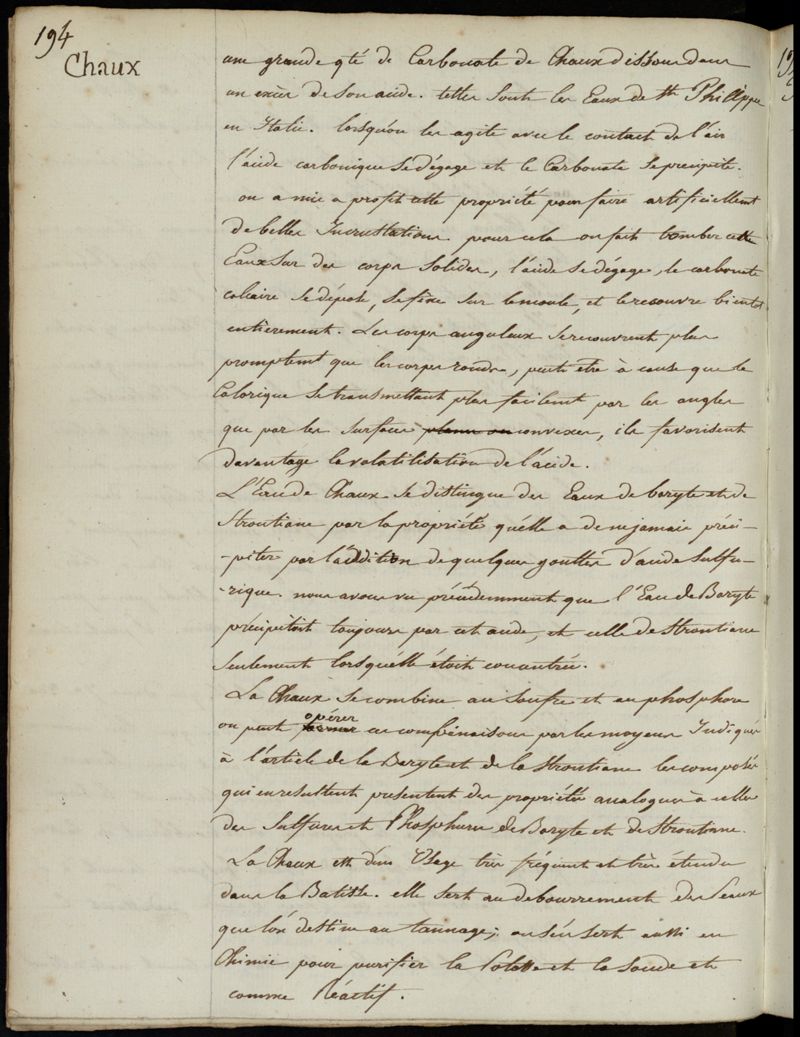 194
Chaux
une grande qté de Carbonate de Chaux dissous dans
un excès de son acide. telles sont les Eaux de St Philippe
en Italie. lorsqu'on les agite avec le contact de l'air
l'acide carbonique se dégage et le Carbonate se précipite.
on a mis a profit cette propriété pour faire artificiellemt
de belles Incrustations pour cela on fait tomber cette
Eaux sur des corps solides, l'acide se dégage, le carbonate
calcaire se dépose, se fixe sur le moule, et le recouvre bientot
entièrement. Les corps anguleux se recouvrent plus
promptemt que les corps ronds, peut être à cause que le
Calorique se transmettant plus facilemt par les angles
que par les surfaces planes ou convexes, ils favorisent
davantage la volatilisation de l'acide.
L'Eau de Chaux se distingue des Eaux de baryte et de
Strontiane par la propriété qu'elle a de ne jamais préci-
-piter par l'addition de quelques gouttes d'acide Sulfu-
-rique. nous avons vu précédemment que l'Eau de Baryte
précipitoit toujours par cet acide, et celle de Strontiane
seulement lorsqu'elle étoit concentrée.
La Chaux se combine au soufre et au phosphore
on peut opérer ces combinaisons par les moyens Indiqués
à l'article de la Baryte et de la Strontiane les composés
qui en resultent presentent des propriétés analogues à celles
des Sulfures et Phosphures de Baryte et de Strontiane.
La Chaux est d'un Usage très fréquent et très étendu
dans la Batisse. elle sert au debourrement des Peaux
que l'on destine au tannage; on s'en sert aussi en
Chimie pour purifier la Potasse et la Soude et
comme Réactif.